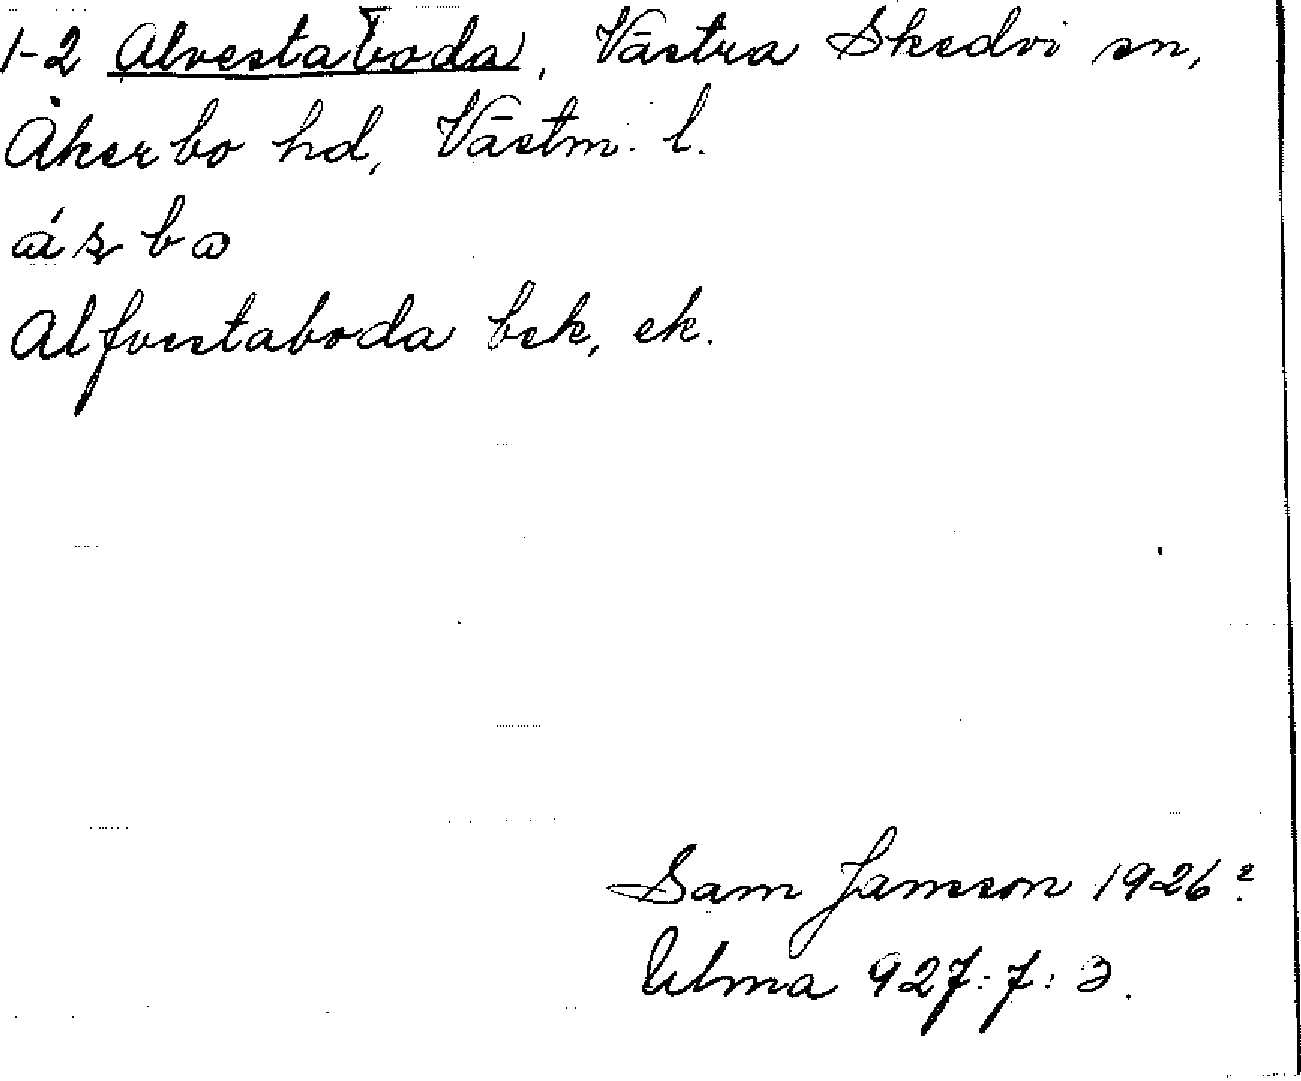 1-2 Alvestaboda, Västra Skedvi sn,
Åkerbo hd, Västm. l.
Alfvestaboda bek, ek.
Sam Jansson 1926?
Ulma 927:7:3.